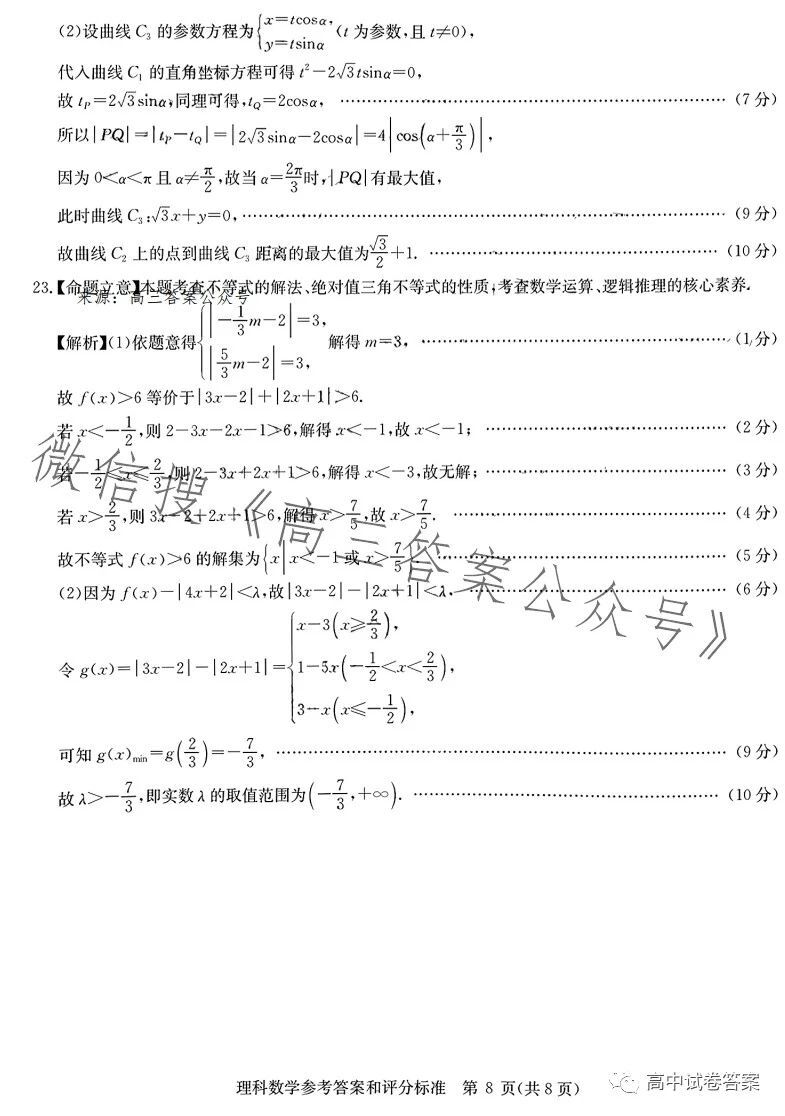 (2)设曲线 C₃ 的参数方程为{x=tcosα, y=tsinα (t 为参数,且 t≠0),
代入曲线 C₁ 的直角坐标方程可得 t²-2√3tsinα=0,
故 t_P=2√3sinα,同理可得,t_Q=2cosα, ………………(7 分)
所以|PQ|=|t_P-t_Q|=|2√3sinα-2cosα|=4|cos(α+π/3)|,
因为 0<α<π 且 α≠π/2,故当 α=2π/3时,|PQ|有最大值,
此时曲线 C₃:√3x+y=0, ………………(9 分)
故曲线 C₂ 上的点到曲线 C₃ 距离的最大值为√3/2+1. ………………(10 分)
23.【命题立意】本题考查不等式的解法、绝对值三角不等式的性质,考查数学运算、逻辑推理的核心素养.
来源:高三答案公众号
【解析】(1)依题意得{|-1/3m-2|=3, |5/3m-2|=3, 解得 m=3, ………………(1 分)
故 f(x)>6 等价于|3x-2|+|2x+1|>6.
若 x<-1/2,则 2-3x-2x-1>6,解得 x<-1,故 x<-1; ………………(2 分)
若-1/2≤x≤2/3,则 2-3x+2x+1>6,解得 x<-3,故无解; ………………(3 分)
若 x>2/3,则 3x-2+2x+1>6,解得 x>7/5,故 x>7/5. ………………(4 分)
故不等式 f(x)>6 的解集为{x|x<-1 或 x>7/5}. ………………(5 分)
(2)因为 f(x)-|4x+2|<λ,故|3x-2|-|2x+1|<λ, ………………(6 分)
令 g(x)=|3x-2|-|2x+1|={x-3(x≥2/3), 1-5x(-1/2<x<2/3), 3-x(x≤-1/2),
可知 g(x)min=g(2/3)=-7/3, ………………(9 分)
故 λ>-7/3,即实数 λ 的取值范围为(-7/3,+∞). ………………(10 分)
微信搜《高三答案公众号》
理科数学参考答案和评分标准 第 8 页(共 8 页)
高中试卷答案